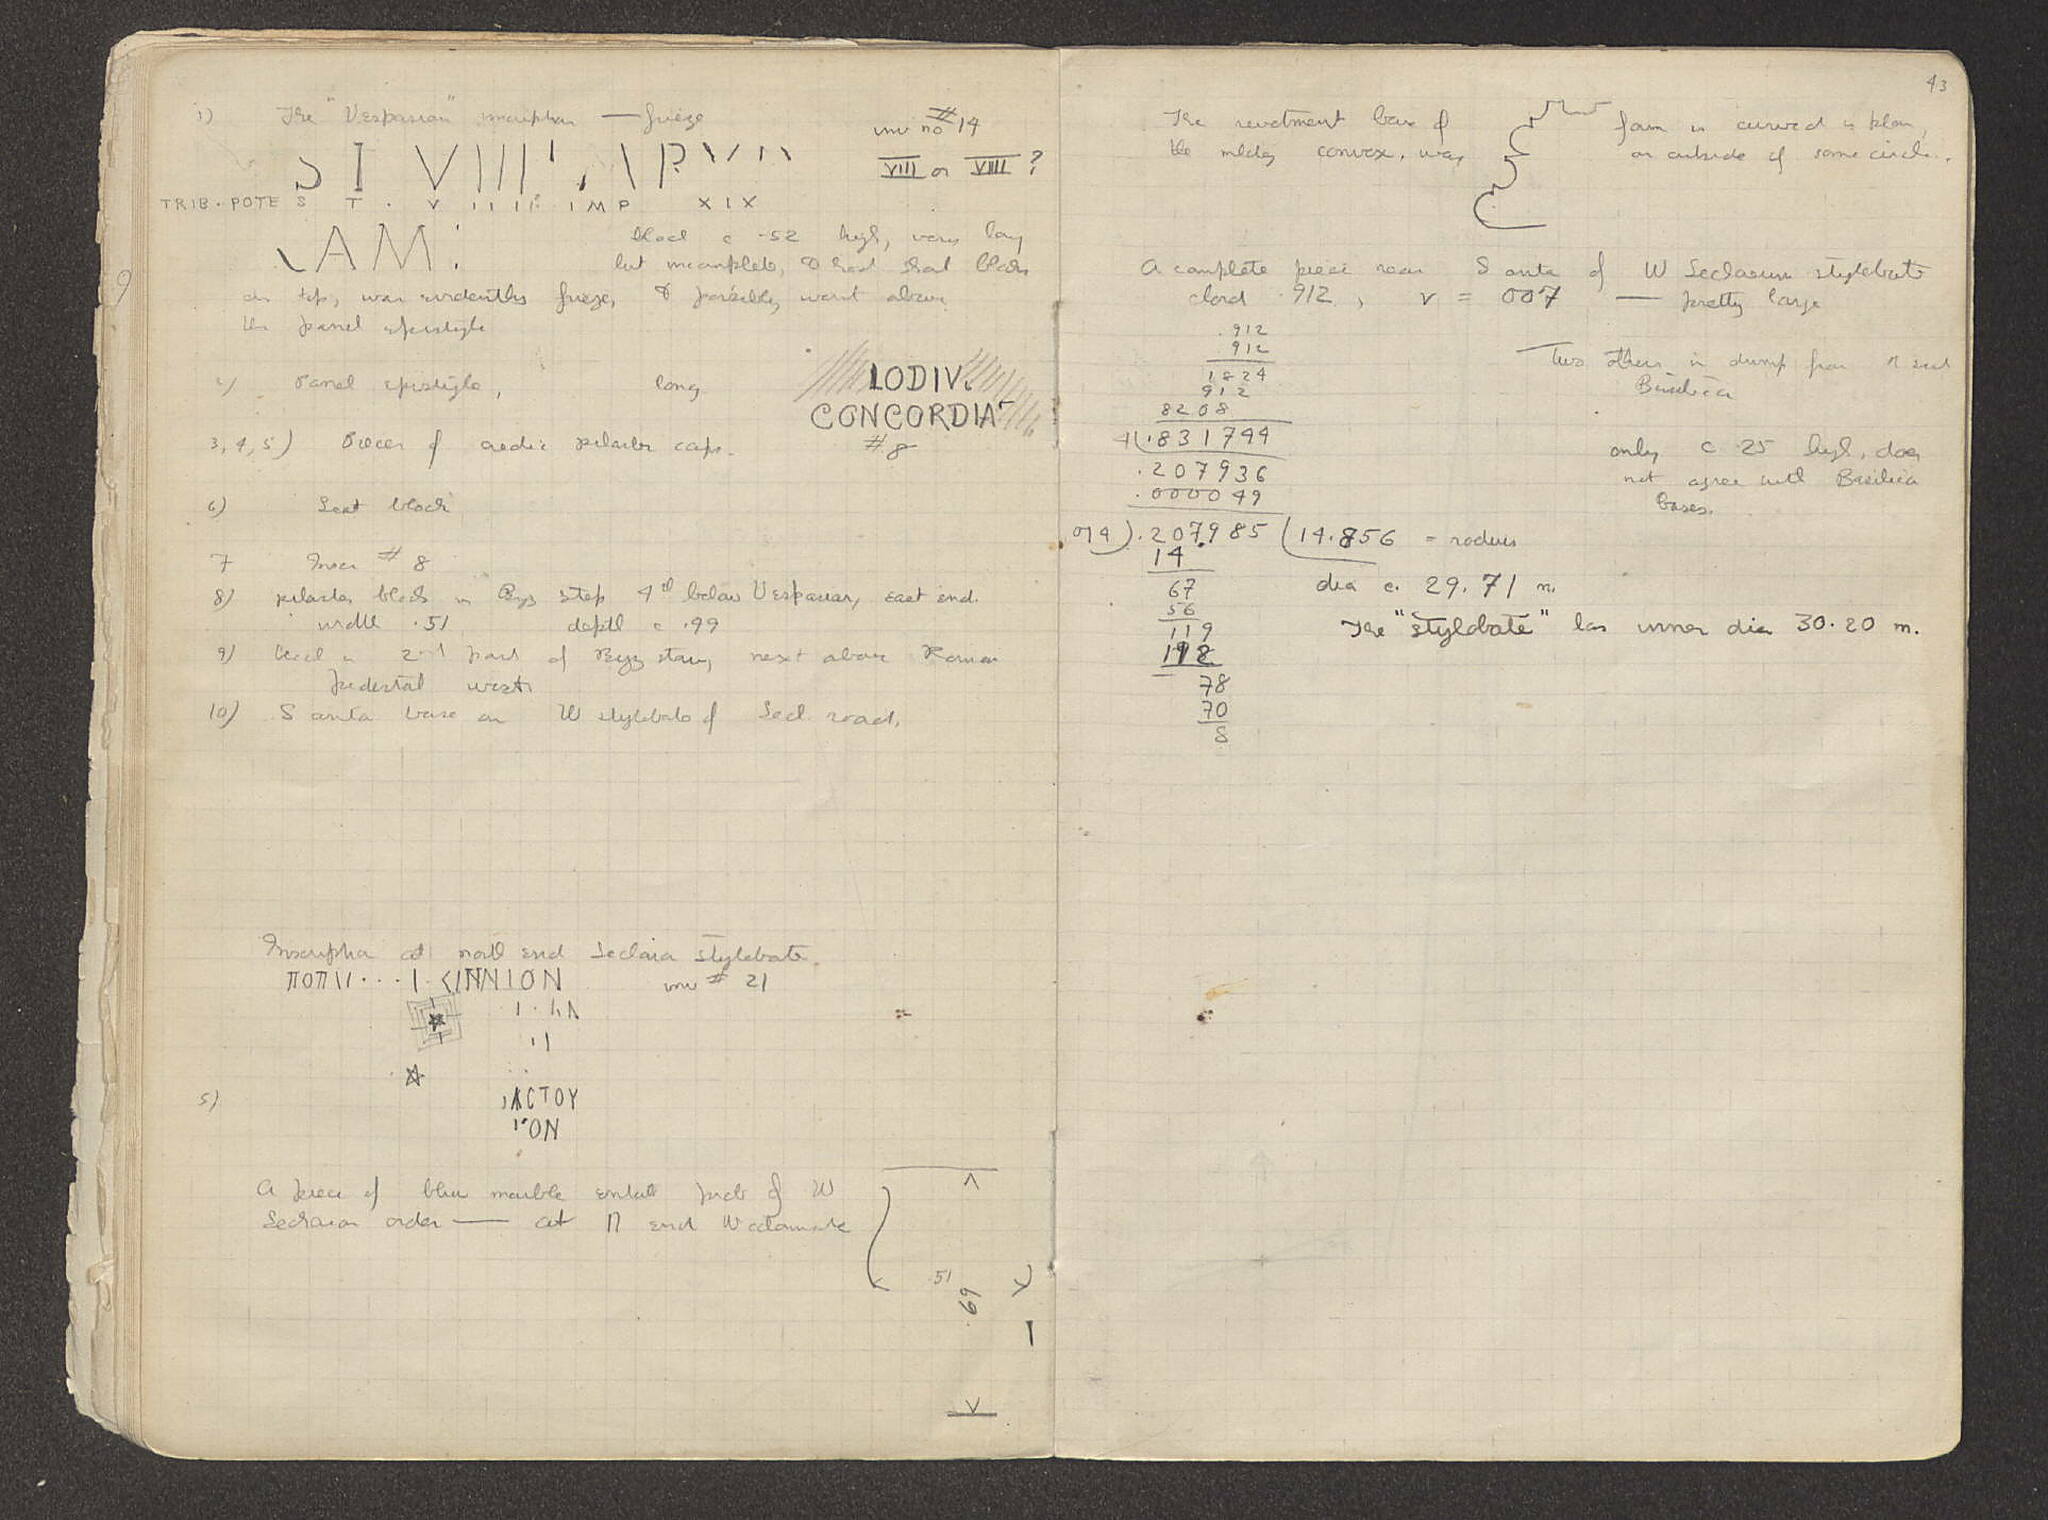 1) The "Vespasian" inscription — frieze
inv no #14
S I V I I I I ' , \ P V
VIII or VIIII ?
TRIB · POTE S T · V I I I I · I M P X I X
AM
block c .52 high, very long
but incomplete, & had shal blocks
on top, was evidently frieze, & possibly went above
the panel epistyle
2) Panel epistyle, long
LODIV.
CONCORDIA
3, 4, 5) Pieces of aedic pilaster caps.
#8
6) Seat block
7 Inscr #8
8) pilaster block in Byz step 4th below Vespasian, east end.
width .51 depth c .99
9) block in 2nd part of Byz stair, next above Roman
pedestal west
10) S anta base on W stylobate of Lech road.
Inscription at north end Lechaion stylobate.
ΠΟΠ ... Ι · ΝΝΙΟΝ
inv # 21
5)
ΑCΤΟΥ
ΟΝ
A piece of blue marble entab prob of W
Lechaion order — at N end W colonnade
.51
.69
43
The revetment base of form is curved in plan,
the mldg convex, was on outside of some circle.
A complete piece near S anta of W Lechaeum stylobate
chord .912, v = 007 — pretty large
.912
912
1824
912
8208
4).831744
.207936
.000049
014).207985(14.856 = radius
14
67
56
119
112
78
70
8
Two others in dump from N end
Basilica
only c .25 high, does
not agree with Basilica
bases.
dia c. 29.71 m.
The "stylobate" has inner dia 30.20 m.